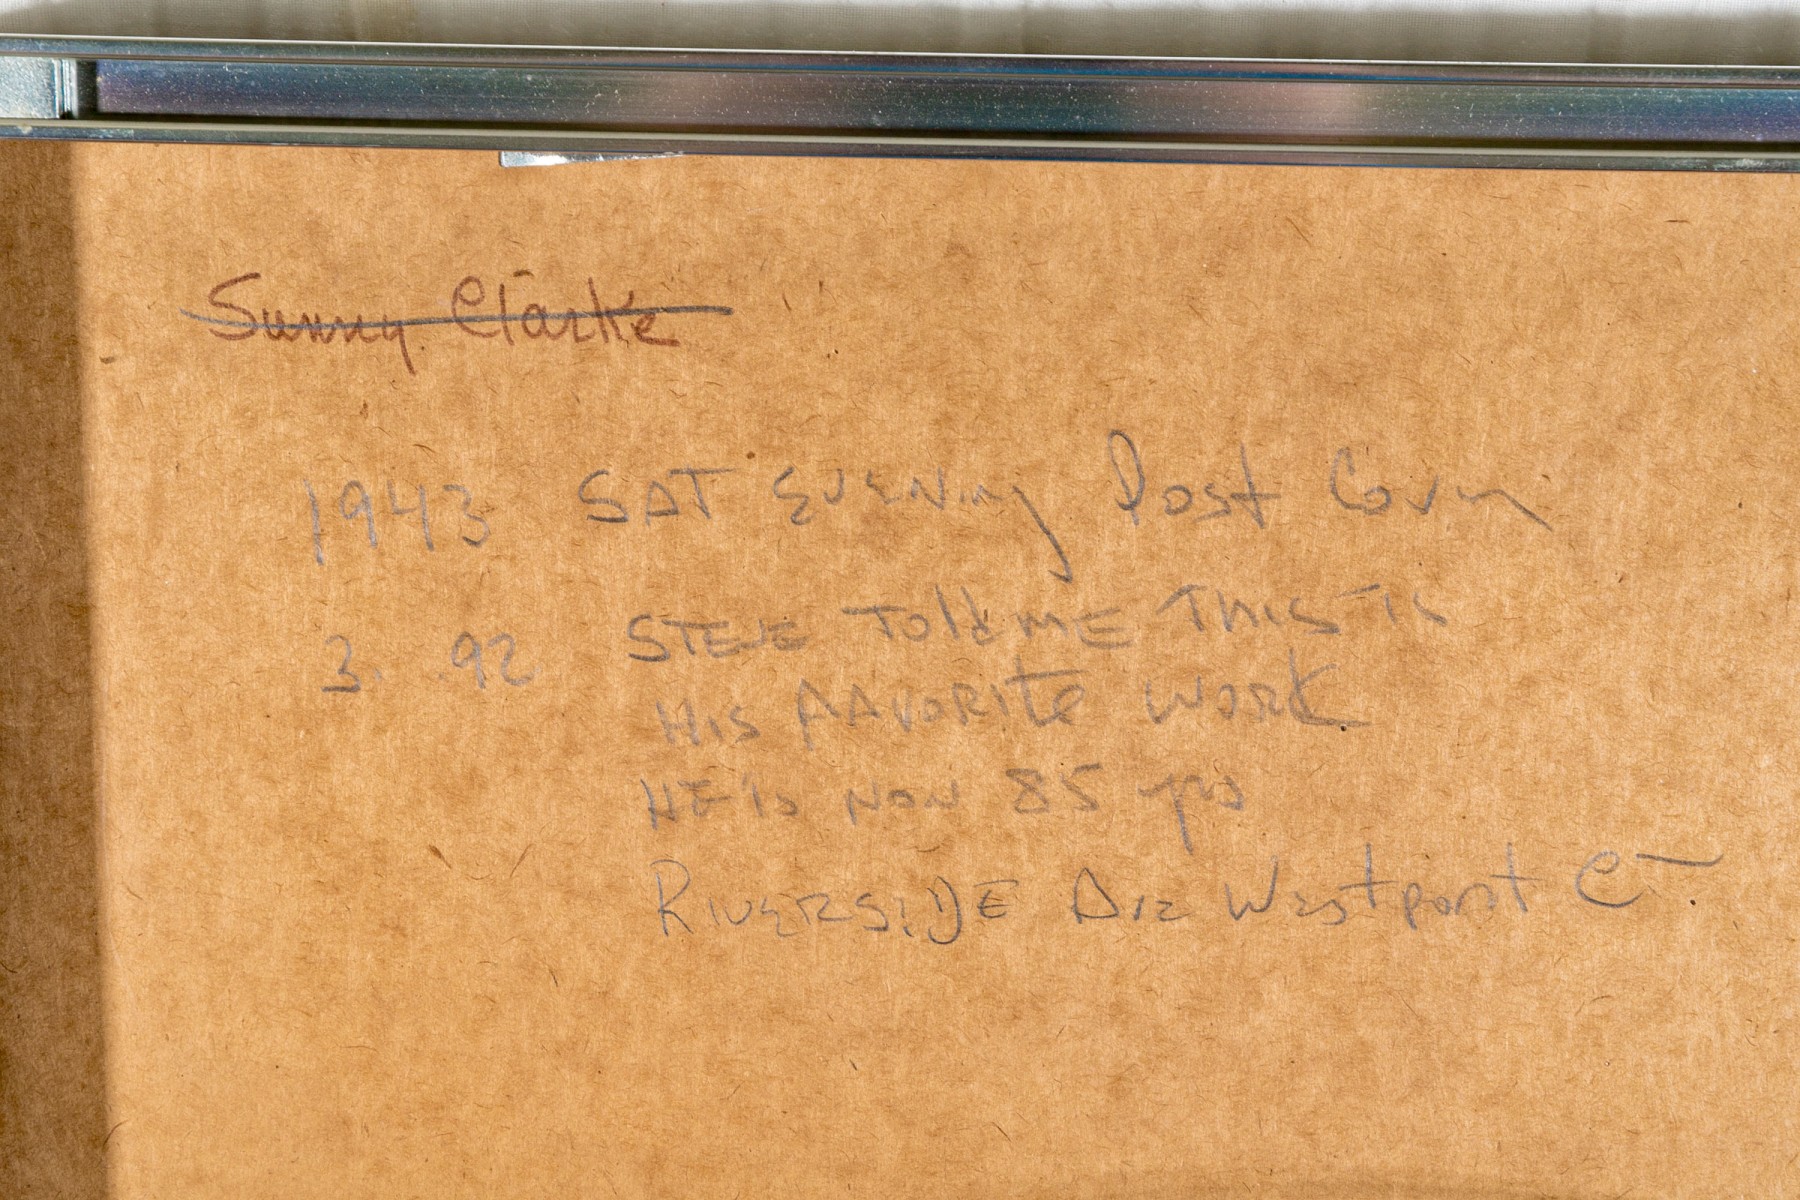 Sunny Clarke
1943 SAT EVENING Post Cover
3. .92 STEVE Told ME THIS IS
HIS FAVORITE WORK
HE is NOW 85 yrs
RIVERSIDE AVE Westport CT.